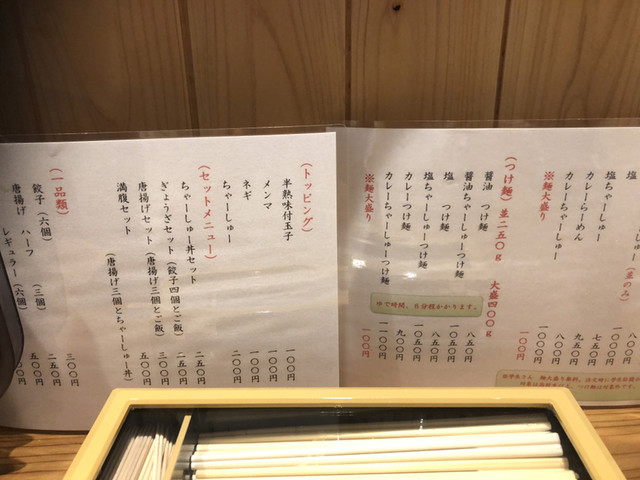 塩ちゃーしゅー
カレーらーめん
カレーちゃーしゅー
※麺大盛り
八〇〇円
七五〇円
一〇〇〇円
一〇〇円
（つけ麺）並二五〇g 大盛四〇〇g
醤油 つけ麺 八五〇円
醤油ちゃーしゅーつけ麺 一〇五〇円
塩 つけ麺 八五〇円
塩ちゃーしゅーつけ麺 一〇五〇円
カレーつけ麺 九〇〇円
カレーちゃーしゅーつけ麺 一一〇〇円
※麺大盛り 一〇〇円
ゆで時間、6分程かかります。
（トッピング）
半熟味付玉子 一〇〇円
メンマ 一〇〇円
ネギ 一〇〇円
ちゃーしゅー 二〇〇円
（セットメニュー）
ちゃーしゅー丼セット 二五〇円
ぎょうざセット（餃子四個とご飯） 二五〇円
唐揚げセット（唐揚げ三個とご飯） 三〇〇円
満腹セット（唐揚げ三個とちゃーしゅー丼） 五〇〇円
（一品類）
餃子（六個） 三〇〇円
唐揚げ ハーフ（三個） 二五〇円
レギュラー（六個） 五〇〇円